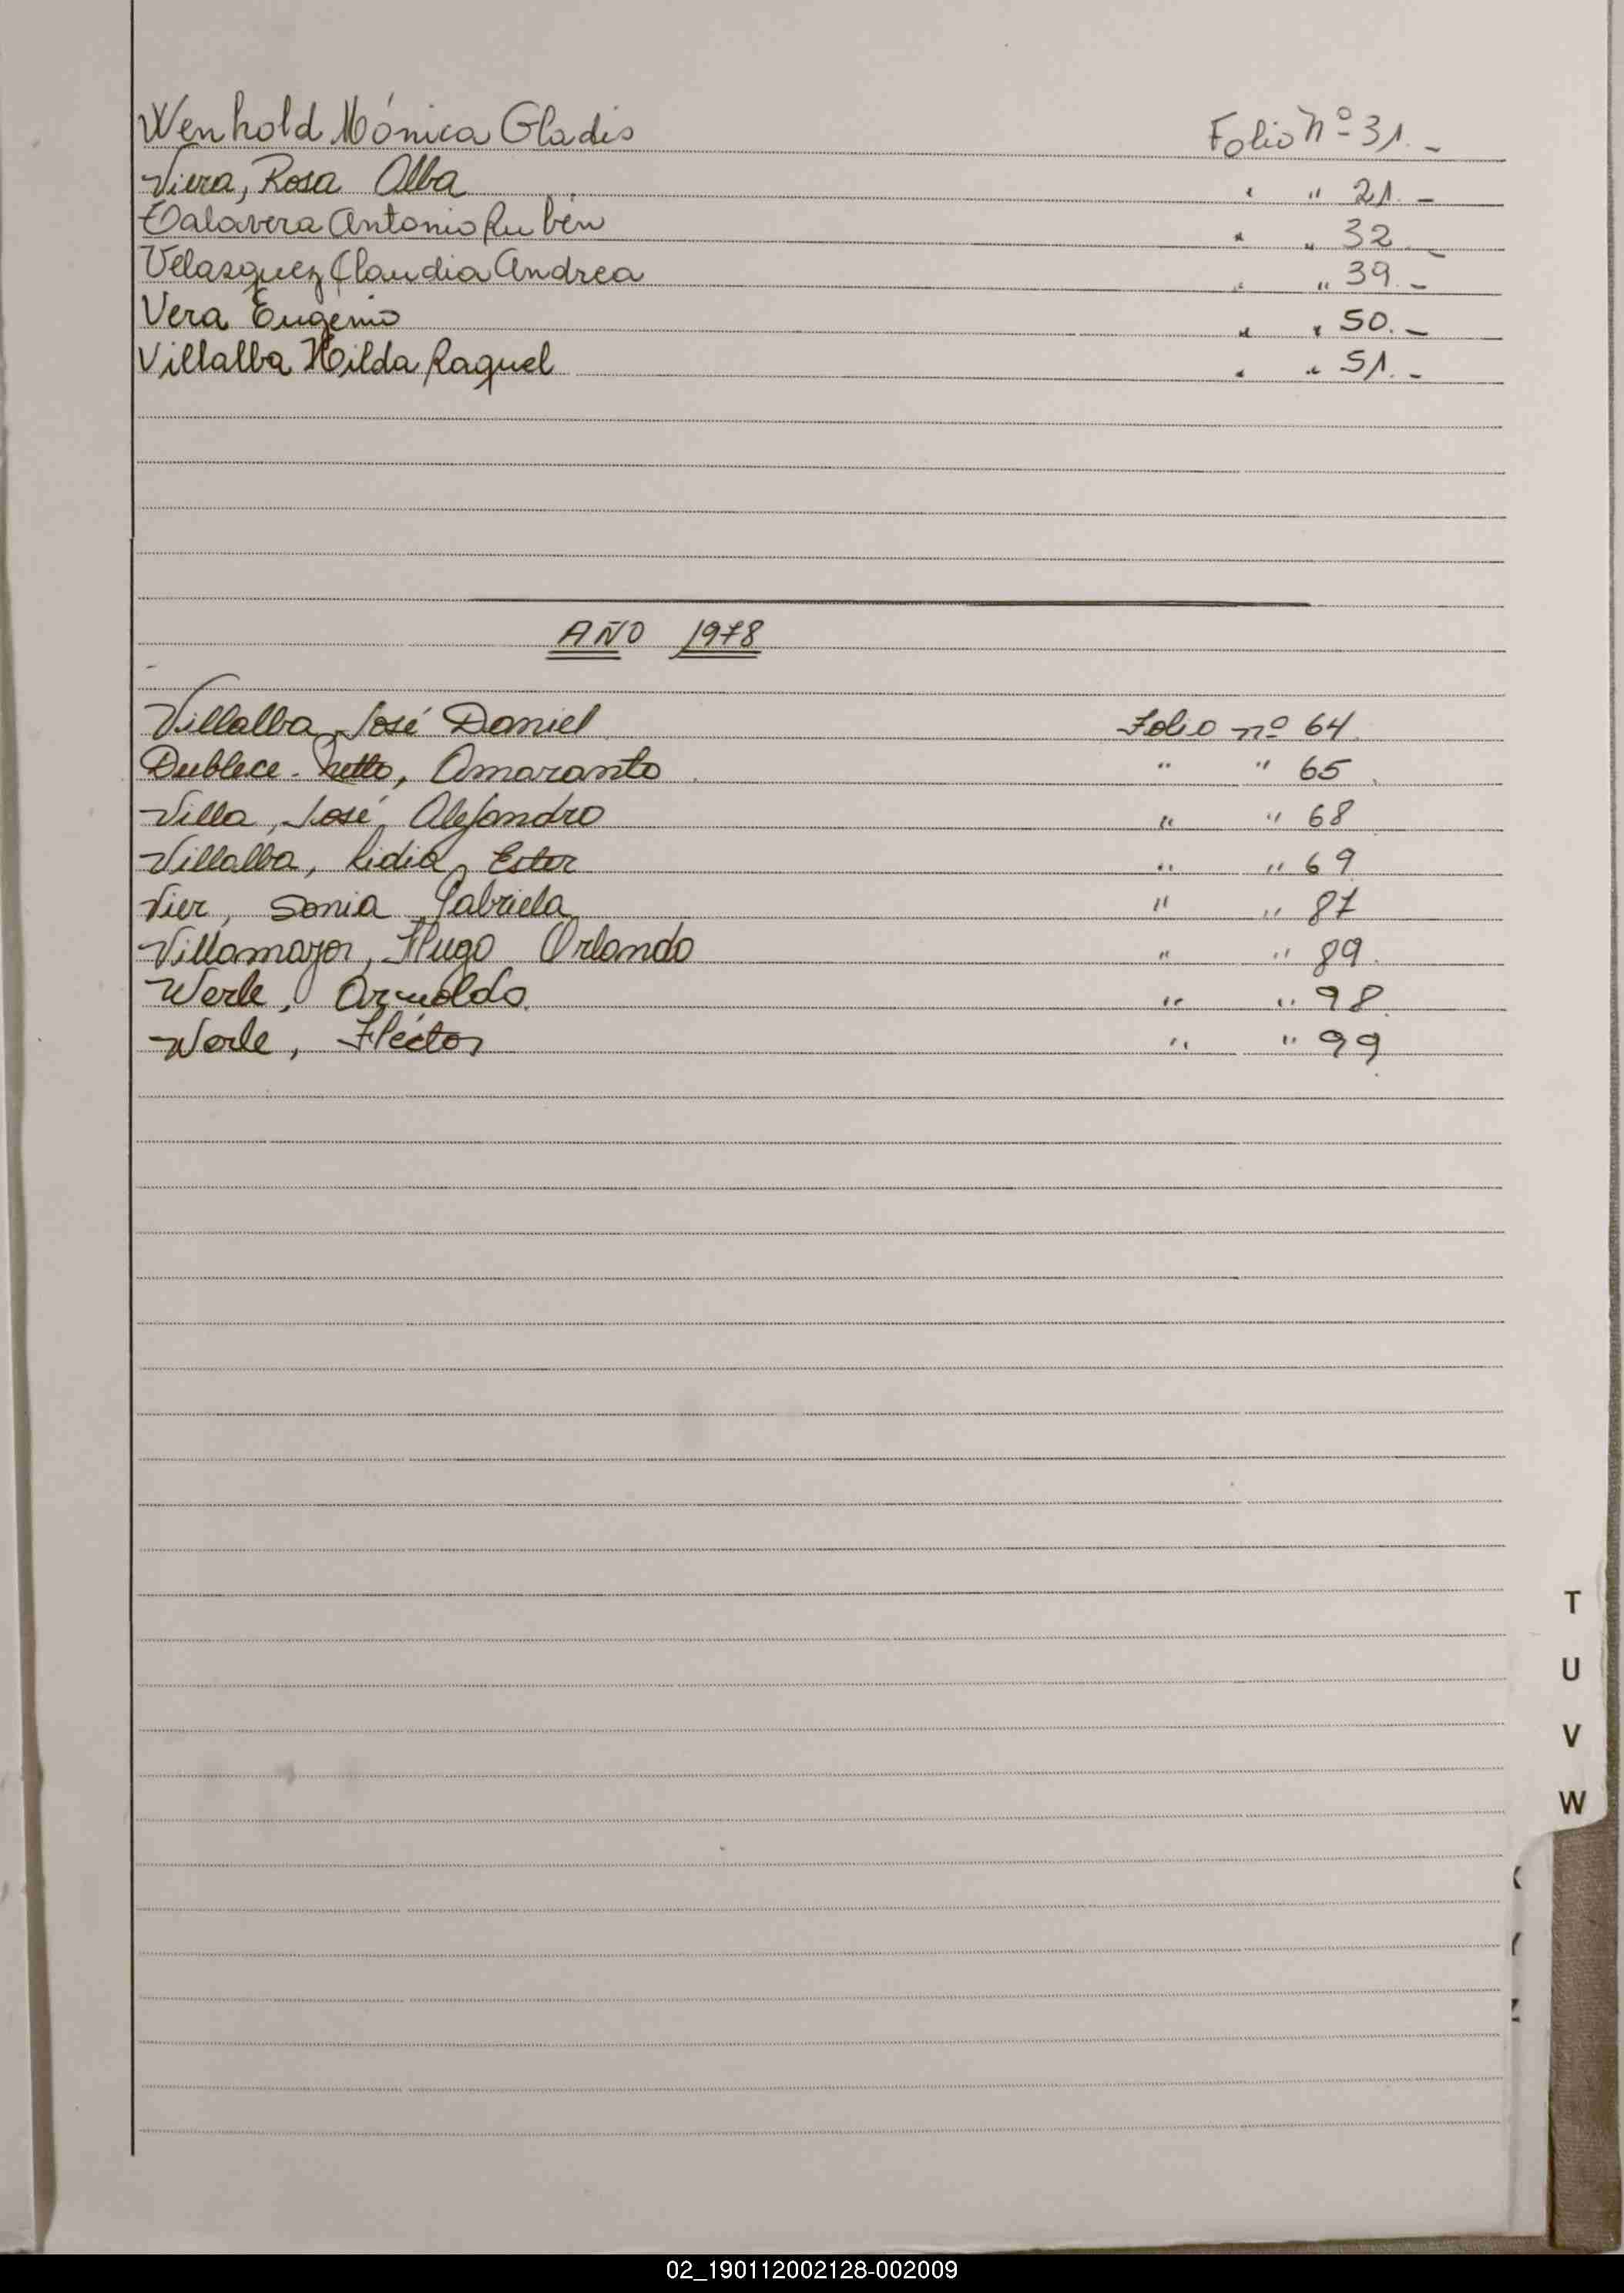 Wenhold Mónica Gladis Folio Nº 31.-
Viera, Rosa Alba " " 21.-
Talavera Antonio Rubén " " 32.-
Velasquez Claudia Andrea " " 39.-
Vera Eugenio " " 50.-
Villalba Hilda Raquel " " 51.-
AÑO 1978
Villalba, José Daniel Folio nº 64.
Netto, Amaranto " " 65.
Villa, José Alejandro " " 68
Villalba, Lidia Ester " " 69
Vier, Sonia Gabriela " " 87
Villamayor, Hugo Orlando " " 89.
Werle, Arnoldo. " " 98.
Werle, Héctor " " 99.
T
U
V
W
Y
Z
02_190112002128-002009